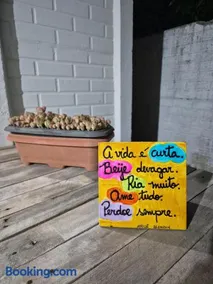 A vida é curta.
Beije devagar.
Ria muito.
Ame tudo.
Perdoe sempre.
Booking.com